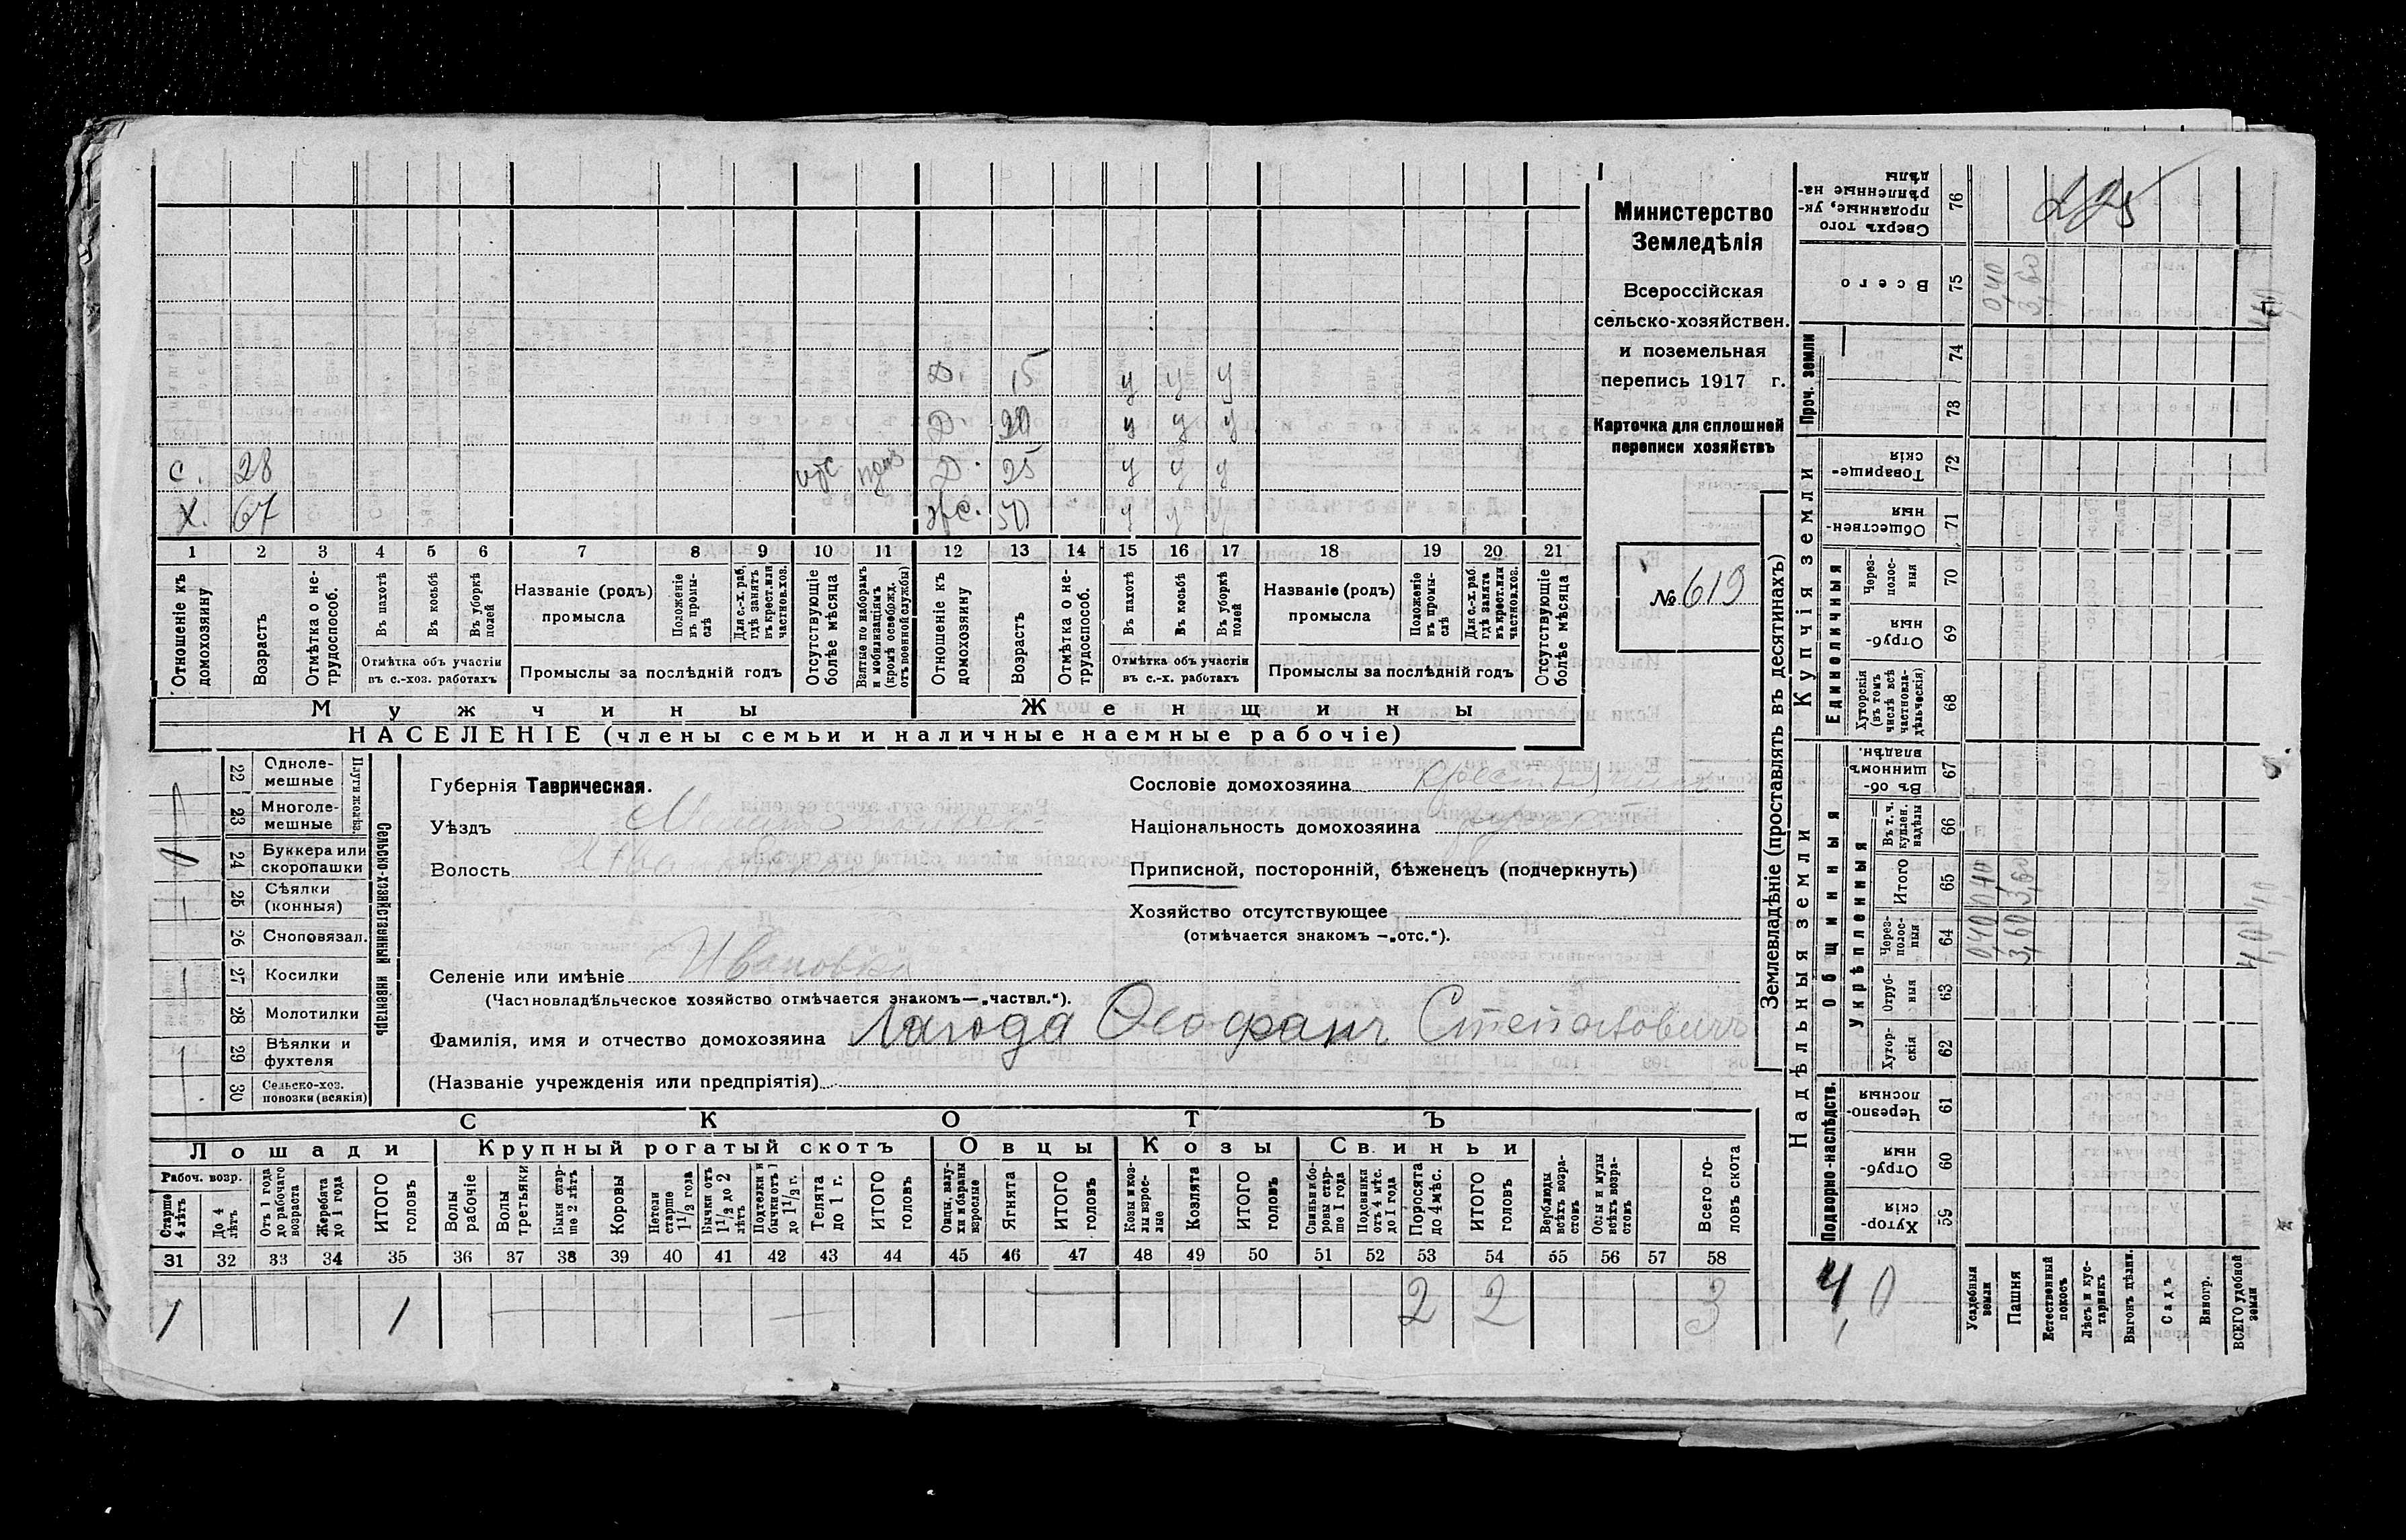 Д. 15 у у у
Д. 20 у у у
с. 28 отс Д. 25 у у у
х. 67 ж. 50 у у у
1 2 3 4 5 6 7 8 9 10 11 12 13 14 15 16 17 18 19 20 21
Отношеніе къ домохозяину
Возрастъ
Отмѣтка о не-трудоспособ.
Въ пахотѣ
Въ косьбѣ
Въ уборкѣ полей
Отмѣтка объ участіи въ с.-хоз. работахъ
Названіе (родъ) промысла
Положеніе въ промы-слѣ
Для с.-х. раб, гдѣ занятъ въ крест. или частнов. хоз.
Промыслы за послѣдній годъ
Отсутствующіе болѣе мѣсяца
Взятые по наборамъ и мобилизаціямъ (кромѣ освобржд. отъ военной службы)
Отношеніе къ домохозяину
Возрастъ
Отмѣтка о не-трудоспособ.
Въ пахотѣ
Въ косьбѣ
Въ уборкѣ полей
Отмѣтка объ участіи въ с.-х. работахъ
Названіе (родъ) промысла
Положеніе въ промы-слѣ
Для с.-х. раб. гдѣ занята въ крест. или частнов. хоз.
Промыслы за послѣдній годъ
Отсутствующіе болѣе мѣсяца
Мужчины
Женщины
НАСЕЛЕНІЕ (члены семьи и наличные наемные рабочіе)
Министерство
Земледѣлія
Всероссійская
сельско-хозяйствен.
и поземельная
перепись 1917 г.
Карточка для сплошной
переписи хозяйствъ
№ 619
22 Одноле-мешные
23 Многоле-мешные
24 Буккера или скоропашки
25 Сѣялки (конныя)
26 Сноповязал.
27 Косилки
28 Молотилки
29 Вѣялки и фухтеля
30 Сельско-хоз. повозки (всякія)
Сельско-хозяйственный инвентарь
Губернія Таврическая.
Уѣздъ
Волость
Селеніе или имѣніе Ивановка
(Частновладѣльческое хозяйство отмѣчается знакомъ—„частвл.“).
Фамилія, имя и отчество домохозяина Лагода Ѳеофанъ Степановичъ
(Названіе учрежденія или предпріятія)
Сословіе домохозяина крестьянинъ
Національность домохозяина
Приписной, посторонній, бѣженецъ (подчеркнуть)
Хозяйство отсутствующее
(отмѣчается знакомъ —„отс.“).
СКОТЪ
Лошади
Крупный рогатый скотъ
Овцы
Козы
Свиньи
Рабоч. возр.
Старше 4 лѣтъ
До 4 лѣтъ
Отъ 1 года до рабочаго возраста
Жеребята до 1 года
ИТОГО головъ
Волы рабочіе
Волы третьяки
Быки стар-ше 2 лѣтъ
Коровы
Нетели старше 1½ года
Бычки отъ 1½ до 2 лѣтъ
Подтелки и бычки отъ 1 до 1½ г.
Телята до 1 г.
ИТОГО головъ
Овцы, валу-хи и бараны взрослые
Ягнята
ИТОГО головъ
Козы и коз-лы взрос-лые
Козлята
ИТОГО головъ
Свиньи бо-ровы стар-ше 1 года
Подсвинка отъ 4 мѣс. до 1 года
Поросята до 4 мѣс.
ИТОГО головъ
Верблюды всѣхъ возра-стовъ
Ослы и мулы всѣхъ возра-стовъ
Всего го-ловъ скота
31 32 33 34 35 36 37 38 39 40 41 42 43 44 45 46 47 48 49 50 51 52 53 54 55 56 57 58
1 1 2 2 3
Землевладѣніе (проставлять въ десятинахъ)
Надѣльныя земли
Купчія земли
Проч. земли
Подворно-наслѣдств.
Общинныя
Укрѣпленныя
Единоличныя
Сверхъ того проданные, ук-рѣпленные на-дѣлы 76
Всего 75 0,40 3,60
74
73
Товарище-скія 72
Обществен-ныя 71
Через-полос-ныя 70
Отруб-ныя 69
Хуторскія (въ томъ числѣ всѣ частновла-дѣльческія) 68
Въ об-щинномъ владѣн. 67
Въ т. ч. куплен. надѣлы 66
Итого 65 0,40 3,60
Через-полос-ныя 64 0,40 3,60 4,0
Отруб-ныя 63
Хутор-скія 62
Черезпо-лосныя 61
Отруб-ныя 60
Хутор-скія 59
Усадебныя земли
Пашня
Естественный покосъ
Лѣсъ и кус-тарникъ
Выгонъ дѣлим.
Садъ
Виногр.
ВСЕГО удобной земли
4,0